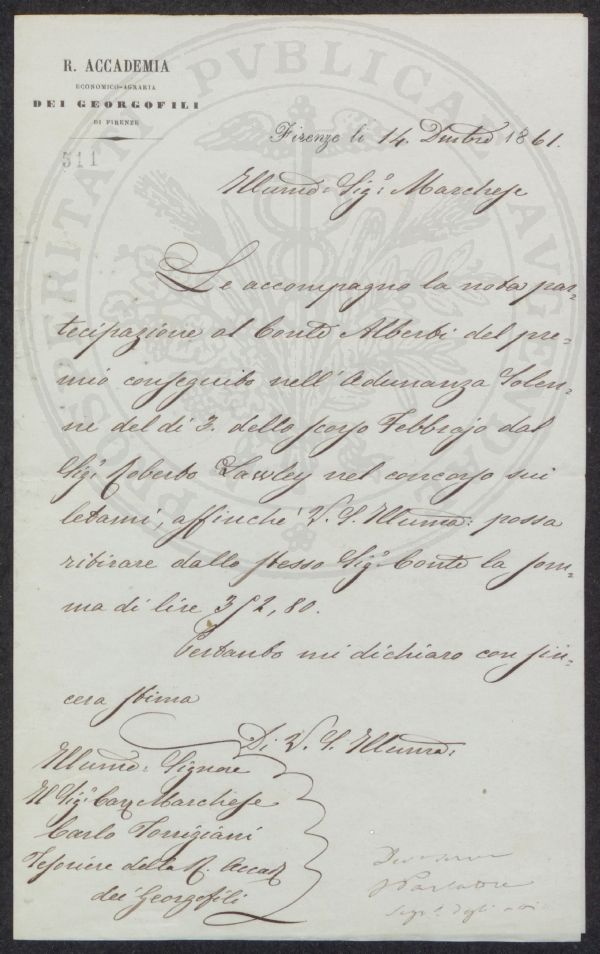 R. ACCADEMIA
ECONOMICO-AGRARIA
DEI GEORGOFILI
DI FIRENZE
511
Firenze li 14. Decbre 1861.
Illumo: Sigr: Marchese
Le accompagno la nota par-
tecipazione al Conte Alberti del pre-
mio conseguito nell' Adunanza Solen-
ne del dì 3. dello scorso Febbrajo dal
Sigr: Roberto Lawley nel concorso sui
letami, affinché V. S. Illuma: possa
ritirare dallo stesso Sigr: Conte la som-
ma di lire 352,80.
Pertanto mi dichiaro con sin-
cera stima
Di V. S. Illuma:
Illumo: Signore
Il Sigr: Cav Marchese
Carlo Torrigiani
Tesoriere della R. Accad
dei Georgofili
Segr. degli atti
PROSPERITATI PVBLICAE AVGENDAE